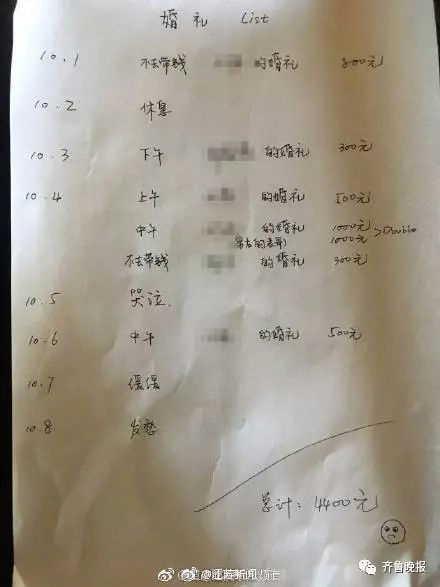 婚礼 List
10.1 不去带钱 的婚礼 800元
10.2 休息
10.3 下午 的婚礼 300元
10.4 上午 的婚礼 500元
中午 的婚礼 1000元
的表哥) 1000元 >Double
不去带钱 的婚礼 300元
10.5 哭泣.
10.6 中午 的婚礼 500元
10.7 缓缓
10.8 发愁
总计: 4400元
齐鲁晚报